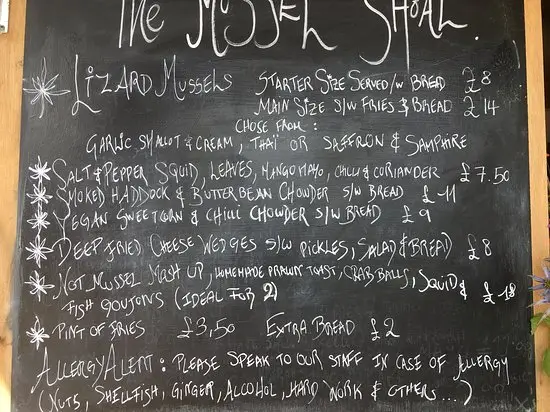 The Mussel Shoal.
Lizard Mussels Starter Size Served/w Bread £8
Main Size s/w Fries & Bread £14
Chose From:
Garlic Shallot & Cream, Thai or Saffron & Samphire
Salt & Pepper Squid, Leaves, Mango Mayo, Chilli & Coriander £7.50
Smoked Haddock & Butterbean Chowder s/w Bread £11
Vegan Sweetcorn & Chilli Chowder s/w Bread £9
Deep Fried Cheese Wedges s/w Pickles, Salad & Bread £8
Not Mussel Mash Up, Homemade Prawn Toast, Crab Balls, Squid & £18
Fish Goujons (Ideal For 2)
Pint of Fries £3,50 Extra Bread £2
Allergy Alert: Please Speak to Our Staff in Case of Allergy
(Nuts, Shellfish, Ginger, Alcohol, Hard Work & Others...)